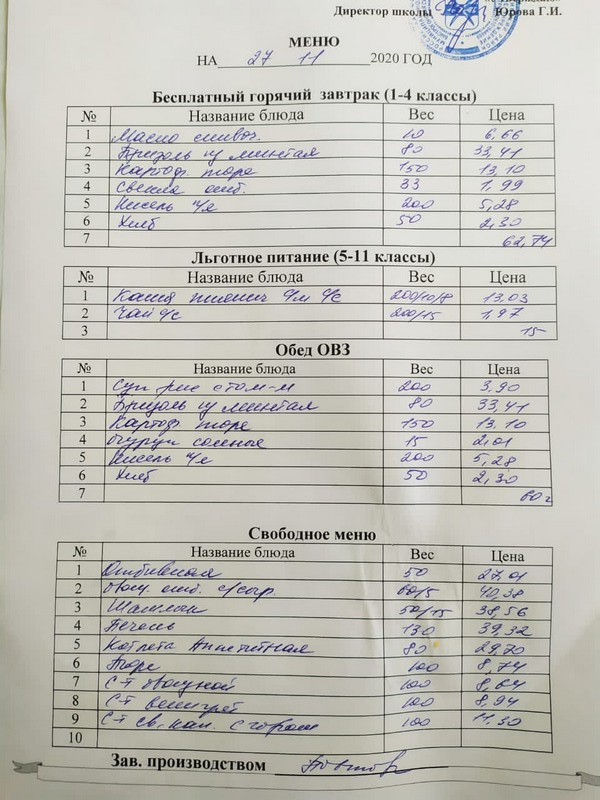 Директор школы Юрова Г.И.
МЕНЮ
НА 27 11 2020 ГОД
Бесплатный горячий завтрак (1-4 классы)
№ Название блюда Вес Цена
1 Масло слив. 10 6,66
2 Бризоль из минтая 80 33,41
3 Картоф. пюре 150 13,10
4 Свекла отв. 33 1,99
5 Кисель 200 5,28
6 Хлеб 50 2,30
7 62,74
Льготное питание (5-11 классы)
№ Название блюда Вес Цена
1 Каша пшенич 200/10/8 13,03
2 Чай с/с 200/15 1,97
3 15
Обед ОВЗ
№ Название блюда Вес Цена
1 Суп рис с том-м 200 3,90
2 Бризоль из минтая 80 33,41
3 Картоф. пюре 150 13,10
4 Огурцы соленые 15 2,01
5 Кисель 200 5,28
6 Хлеб 50 2,30
7 60
Свободное меню
№ Название блюда Вес Цена
1 Отбивная 50 27,01
2 с/сыр. 60/5 40,38
3 Шашлык 50/15 38,56
4 Печень 130 39,32
5 Котлета Аппетитная 80 29,70
6 Пюре 100 8,74
7 С-т овощной 100 8,64
8 С-т винегрет 100 8,94
9 С-т св. кап. с горош 100 11,30
10
Зав. производством